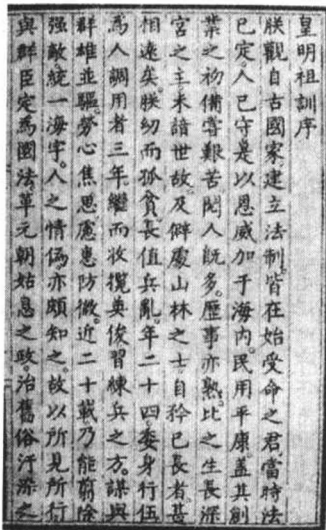 皇明祖訓序
朕觀自古國家建立法制皆在始受命之君當時法
已定人已守是以恩威加于海內民用平康蓋其創
業之初備嘗艱苦閱人既多歷事亦熟比之生長深
宮之主未諳世故及僻處山林之士自矜己長者甚
相遠矣朕幼而孤貧長值兵亂年二十四委身行伍
為人調用者三年繼而收攬英俊習練兵之方謀與
群雄並驅勞心焦思慮患防微近二十載乃能翦除
强敵統一海宇人之情偽亦頗知之故以所見所行
與群臣定為國法革元朝姑息之政治舊俗汙染之